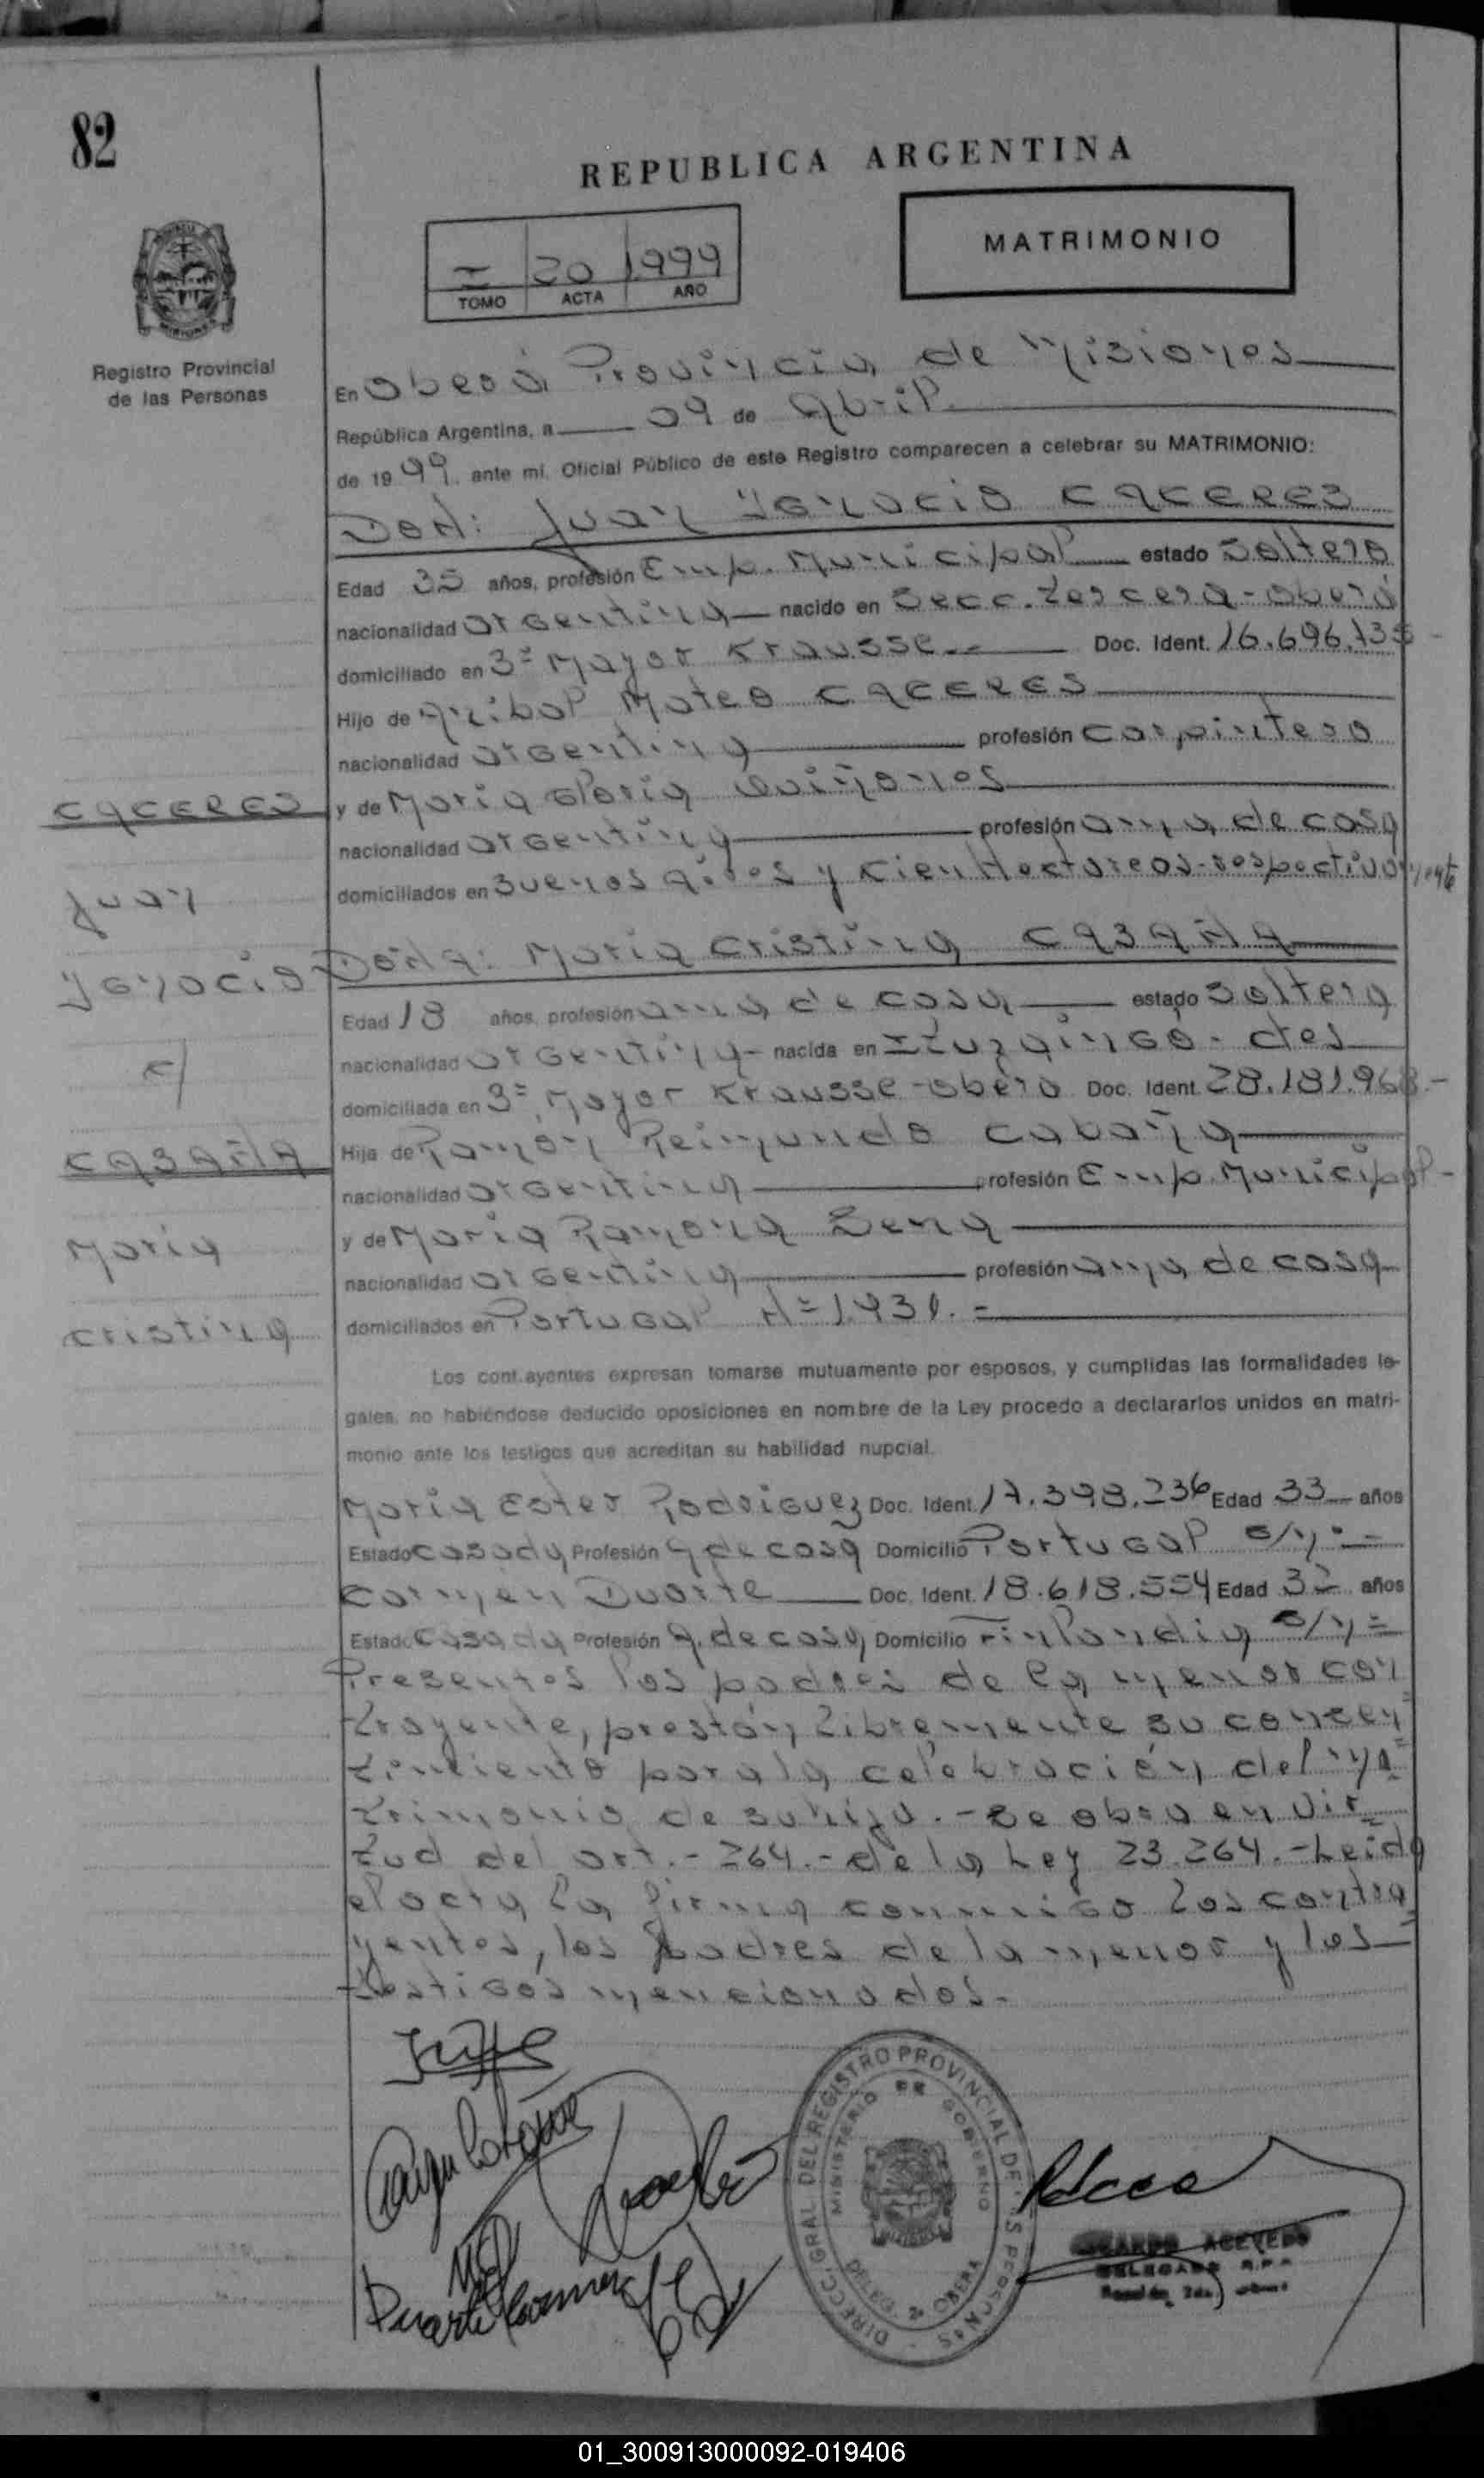 82
REPUBLICA ARGENTINA
MATRIMONIO
I 20 1999
TOMO ACTA AÑO
Registro Provincial
de las Personas
En Oberá Provincia de Misiones
República Argentina, a 09 de Abril
de 1999. ante mí. Oficial Público de este Registro comparecen a celebrar su MATRIMONIO:
DON: Juan Ignacio CACERES
Edad 35 años, profesión Emp. Municipal estado Soltero
nacionalidad Argentina nacido en Secc. Tercera - Oberá
domiciliado en 3º Mayor Krausse Doc. Ident. 16.696.735
Hijo de Anibal Mateo CACERES
nacionalidad argentina profesión Carpintero
y de Maria Gloria Quiñones
nacionalidad argentina profesión ama de casa
domiciliados en Buenos Aires y Cien Hectareas - respectivamente
DOÑA: Maria Cristina CABAÑA
Edad 18 años, profesión ama de casa estado Soltera
nacionalidad argentina - nacida en Ituzaingó - Ctes
domiciliada en 3º Mayor Krausse - Oberá Doc. Ident. 28.181.968.-
Hija de Ramón Reimundo Cabaña
nacionalidad argentina profesión Emp. Municipal -
y de Maria Ramona Sena
nacionalidad argentina profesión ama de casa
domiciliados en Portugal Nº 1.431. -
CACERES
Juan
Ignacio
c/
CABAÑA
Maria
Cristina
Los contrayentes expresan tomarse mutuamente por esposos, y cumplidas las formalidades le-
gales, no habiéndose deducido oposiciones en nombre de la Ley procedo a declararlos unidos en matri-
monio ante los testigos que acreditan su habilidad nupcial.
Maria Ester Rodriguez Doc. Ident. 17.398.236 Edad 33 años
Estado casada Profesión A de casa Domicilio Portugal S/nº -
Carmen Duarte Doc. Ident. 18.618.554 Edad 32 años
Estado Casada Profesión A. de casa Domicilio Finlandia S/nº
Presentes los padres de la menor con
trayente, prestan libremente su consen
timiento para la celebración del ma
trimonio de su hija. - Se obra en vir
tud del art. - 264. - de la Ley 23.264. - Leida
el acta la firma conmigo los contra
yentes, los padres de la menor y los
testigos mencionados.
Duarte Carmen
DIRECC. GRAL. DEL REGISTRO PROVINCIAL DE LAS PERSONAS
MINISTERIO DE GOBIERNO
ACEVEDO
DELEGADO R.P.P.
01_300913000092-019406